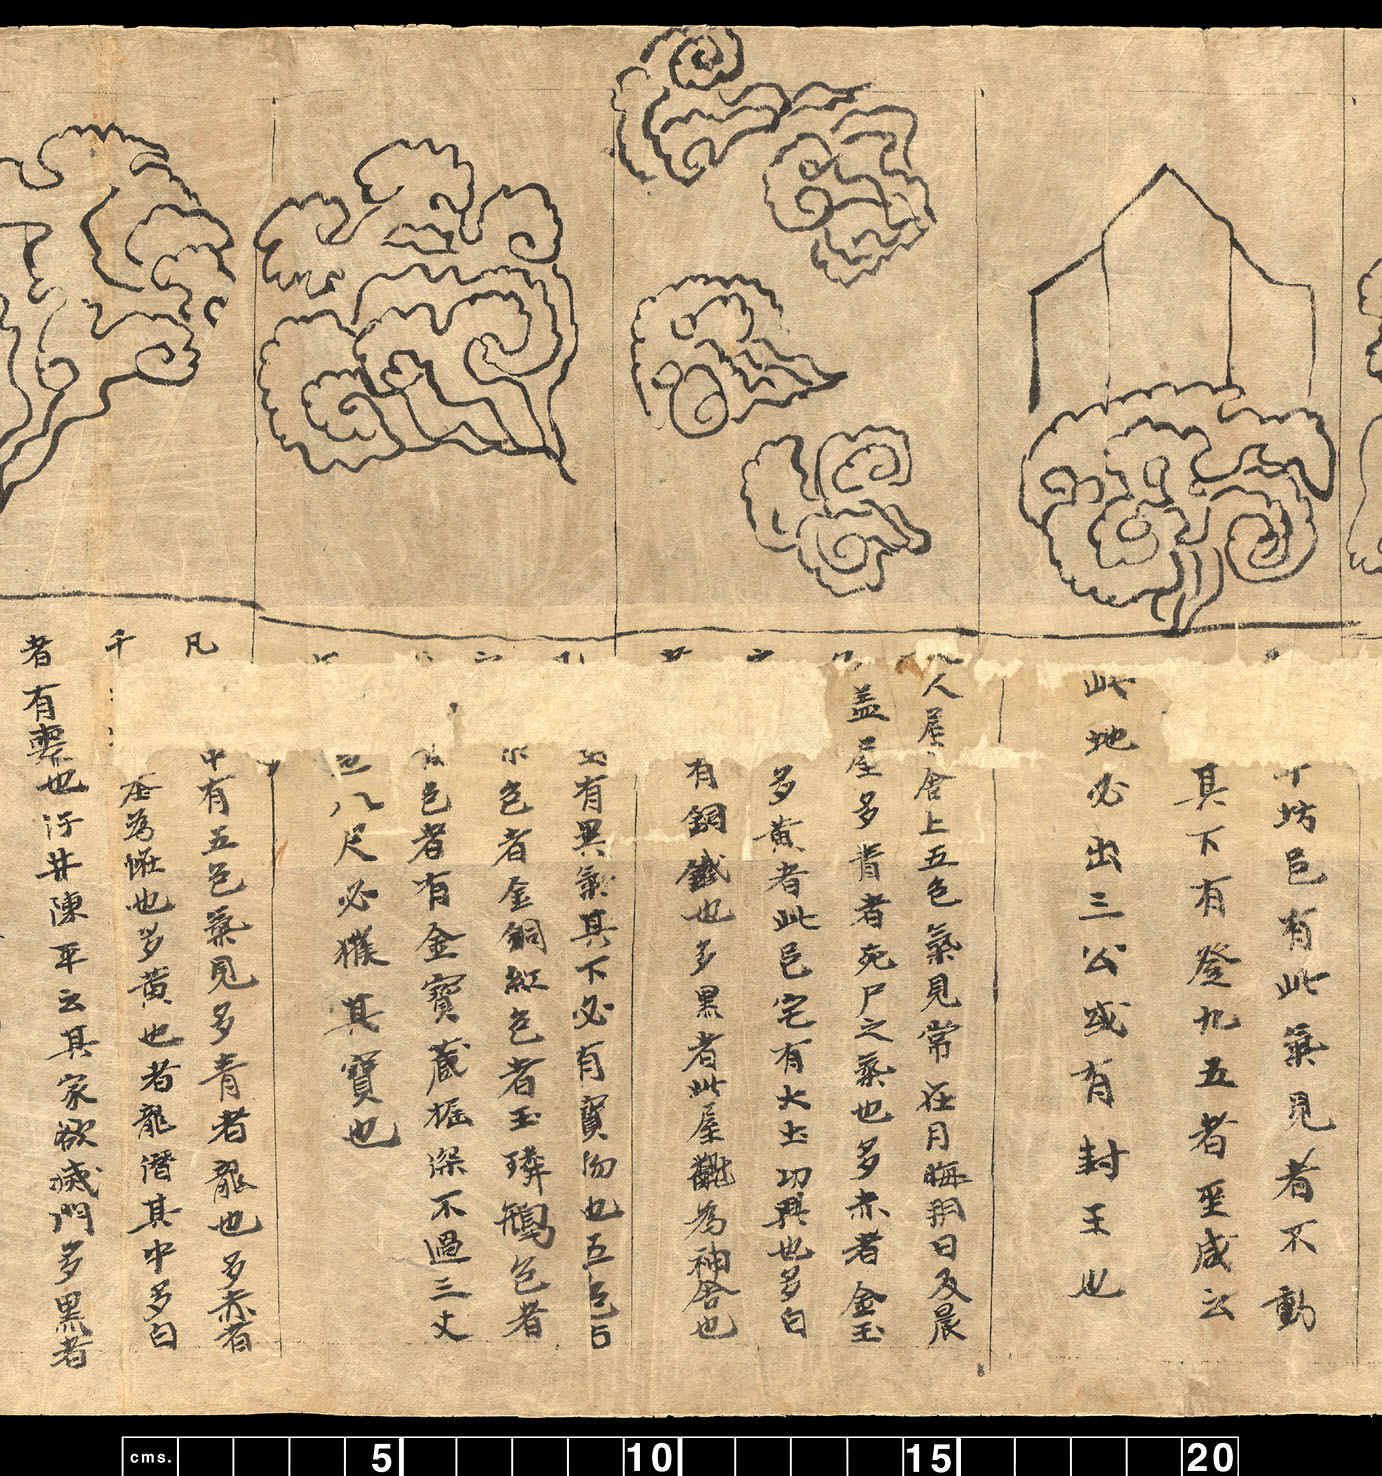 坊邑有此氣見者不動
其下有登九五者巫咸云
此地必出三公或有封王也
人屋舍上五色氣見常在月晦朔日及晨
蓋屋多青者死尸之氣也多赤者金玉
多黃者此邑宅有大土功興也多白
有銅鐵也多黑者此屋觀為神舍也
有異氣其下必有寶物也五色白
色者金銅紅色者玉璘鶴色者
色者有金寶藏掘深不過三丈
八尺必獲其寶也
凡 中有五色氣見多青者龍也多赤者
千 為恠也多黃也者龍潛其中多白
者有喪也汙井陳平云其家欲滅門多黑者
cms. 5 10 15 20